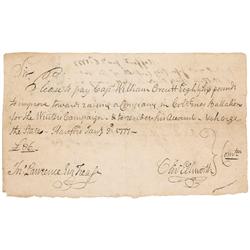 Sir
Please to pay Capt. William Orcutt Eighty Six pounds
to improve towards raising a Company in Col. Enos's Battalion
for the Winter Campaign & to render his Account & charge
the State. Hartford Jany 3d 1777.
£86.
Comttee
Jno Lawrence Esqr Treasr
Olivr Ellsworth